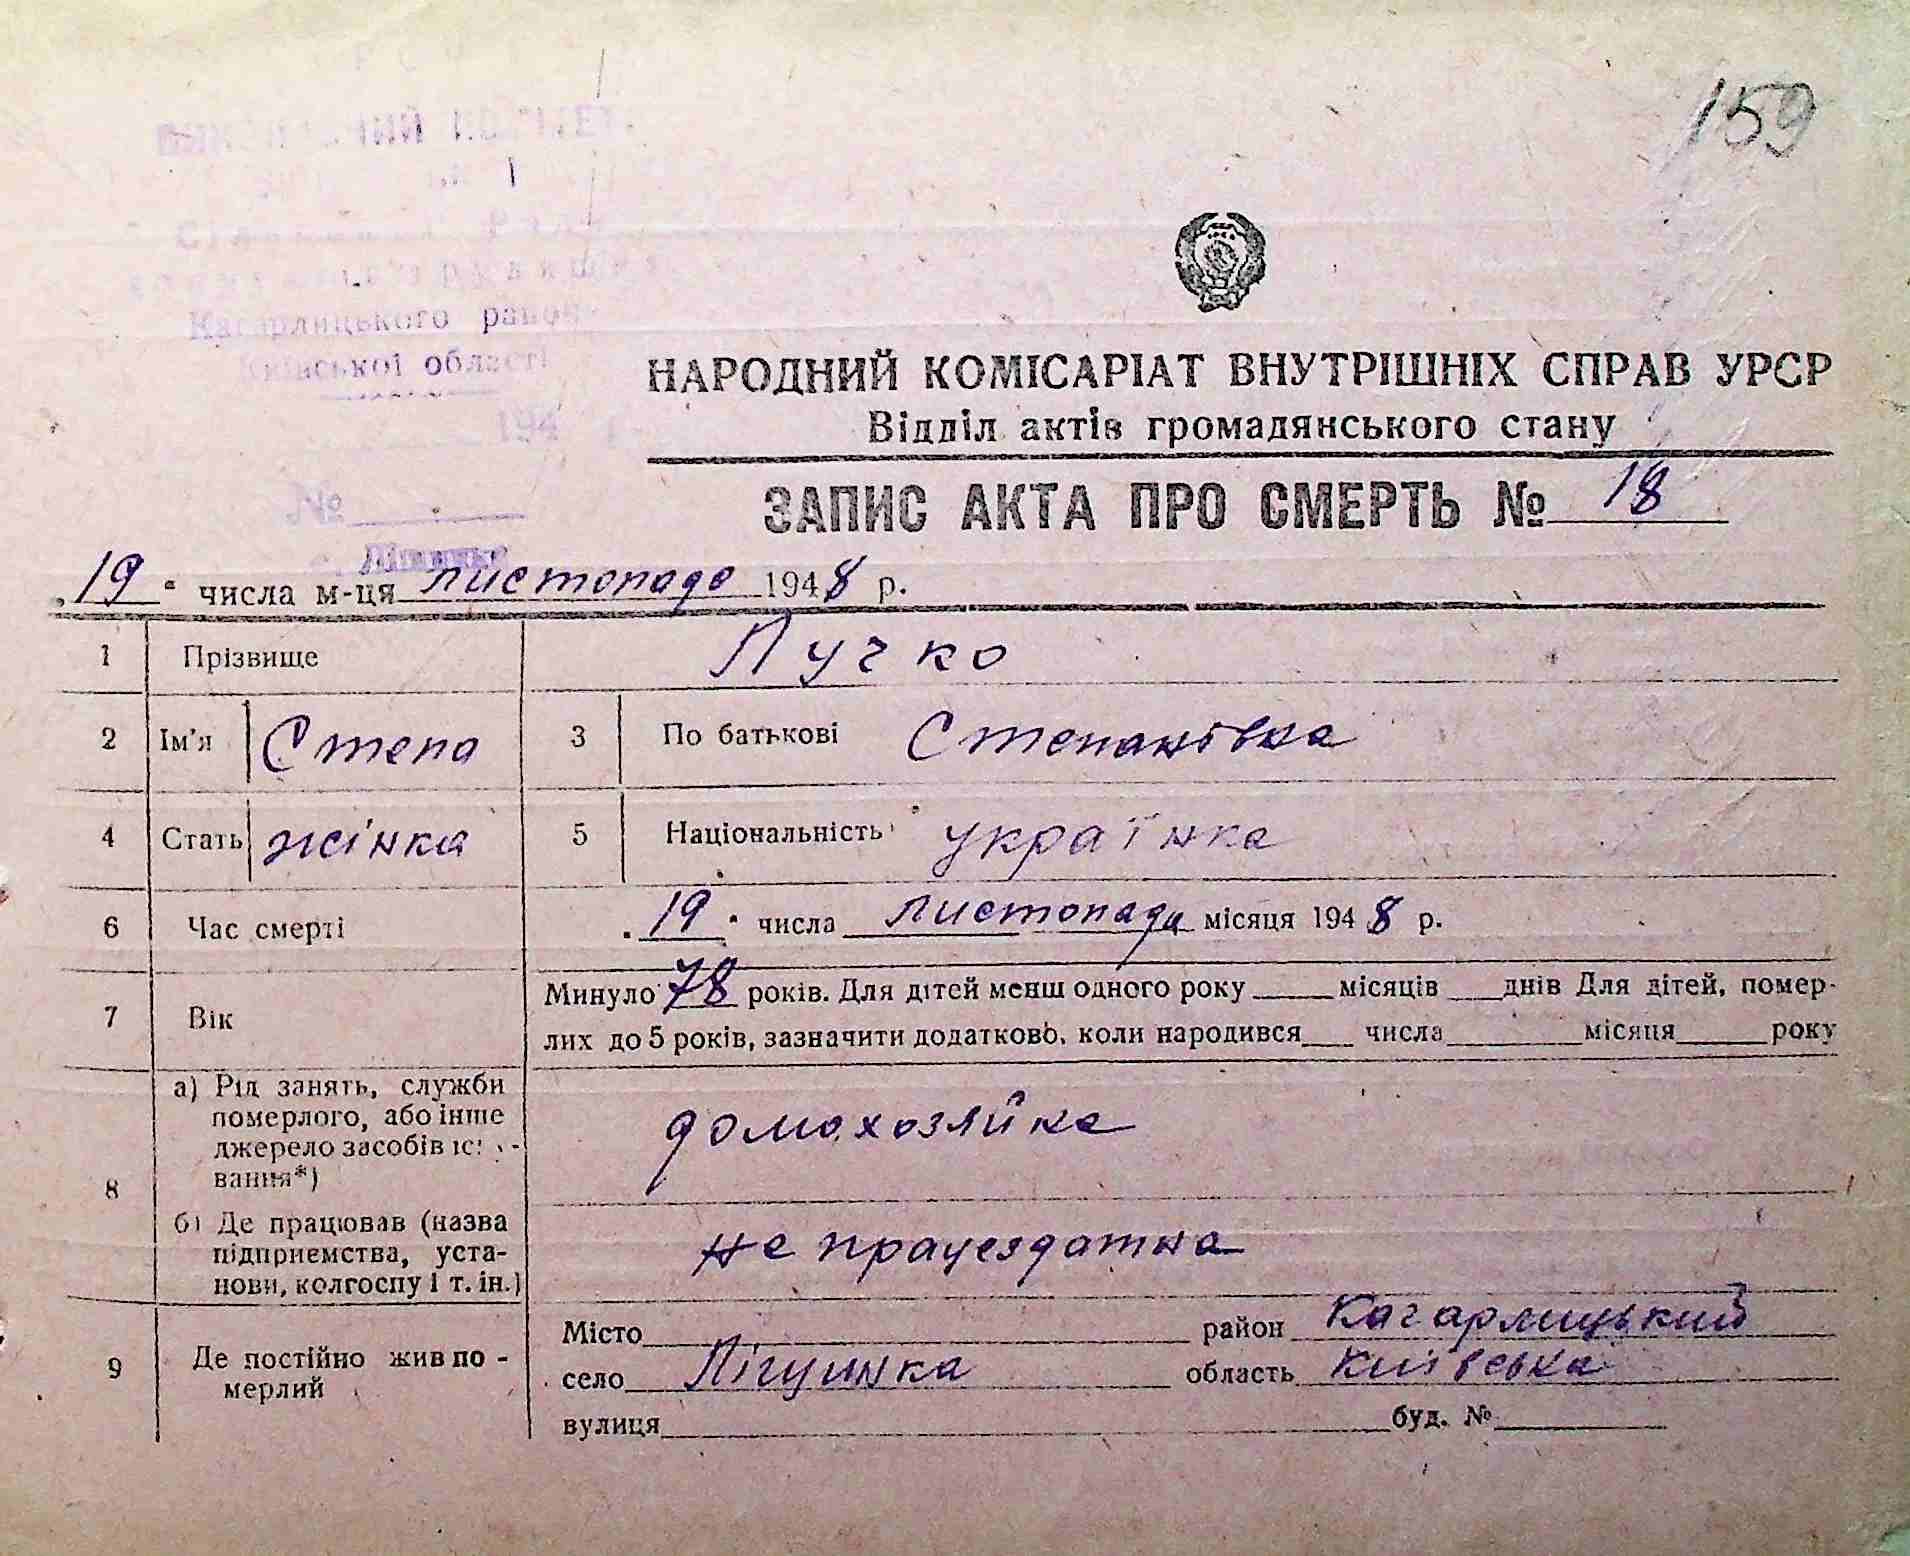 159
Кагарлицького району
Київської області
194
№
НАРОДНИЙ КОМІСАРІАТ ВНУТРІШНІХ СПРАВ УРСР
Відділ актів громадянського стану
ЗАПИС АКТА ПРО СМЕРТЬ № 18
„19“ числа м-ця листопада 1948 р.
1 Прізвище Лучко
2 Ім’я Степа 3 По батькові Степанівна
4 Стать жінка 5 Національність українка
6 Час смерті „19“ числа листопада місяця 1948 р.
7 Вік Минуло 78 років. Для дітей менш одного року ____ місяців ____ днів Для дітей, помер-
лих до 5 років, зазначити додатково, коли народився ____ числа ____ місяця ____ року
8 а) Рід занять, служби
померлого, або інше
джерело засобів існу-
вання*) домохозяйка
б) Де працював (назва
підприємства, уста-
нови, колгоспу і т. ін.) не працездатна
9 Де постійно жив по-
мерлий
Місто ____ район Кагарлицький
село область Київська
вулиця ____ буд. № ____